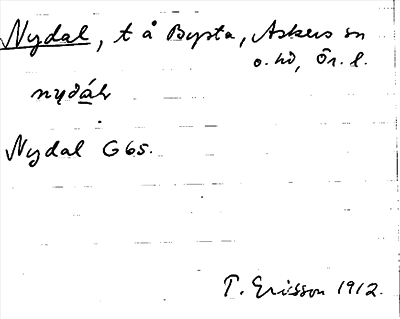 Nydal, t å Bysta, Askers sn
o. hd, Ör. l.
nydál
Nydal G65.
T. Ericsson 1912.